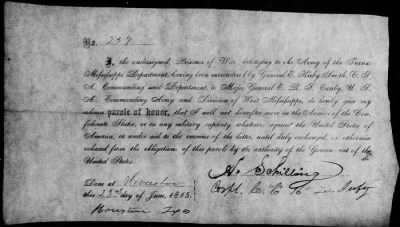 No. 257
I, the undersigned, Prisoner of War, belonging to the Army of the Trans-
Mississippi Department, having been surrendered by General E. Kirby Smith, C. S.
A., Commanding said Department, to Major General E. R. S. Canby, U. S.
A., Commanding Army and Division of West Mississippi, do hereby give my
solemn parole of honor, that I will not hereafter serve in the Armies of the Con-
federate States, or in any military capacity whatever, against the United States of
America, or render aid to the enemies of the latter, until duly exchanged, or otherwise
released from the obligation of this parole by the authority of the Government of the
United States.
A. Schilling
Done at Houston
Corpl. Co.
this 23rd day of June, 1865.
Houston